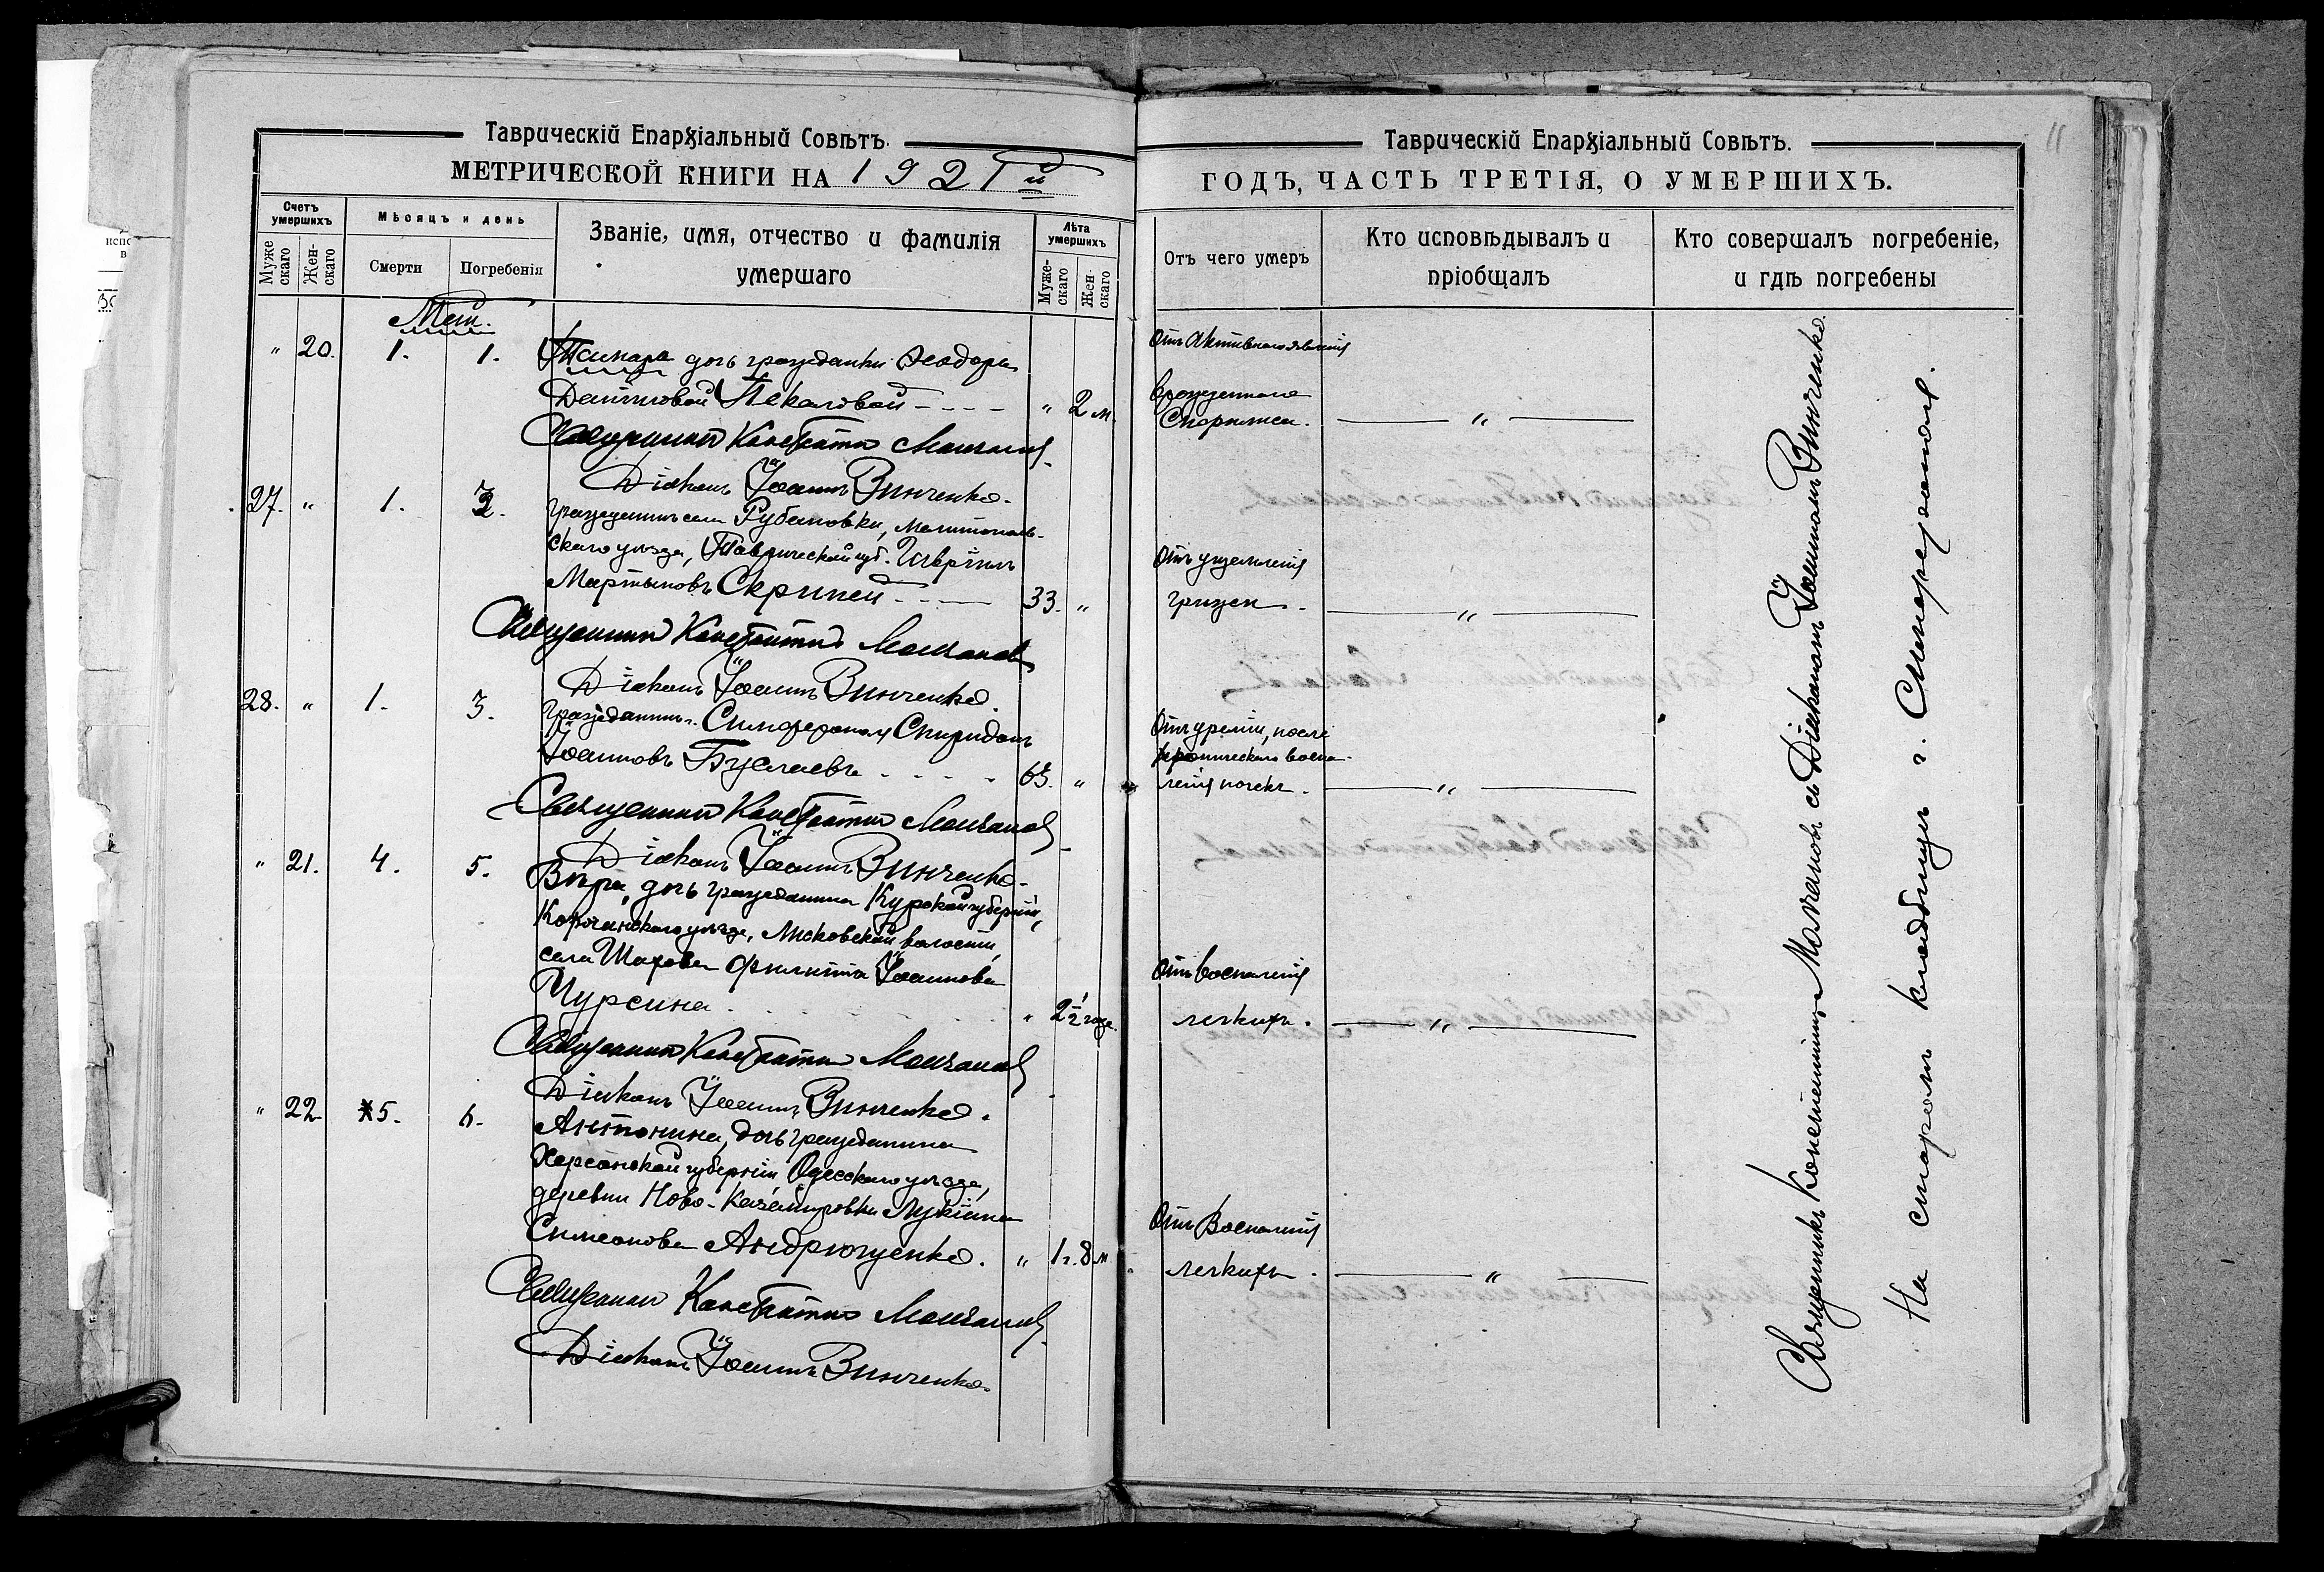 Таврическій Епархіальный Совѣтъ.
МЕТРИЧЕСКОЙ КНИГИ НА 1921й
Счетъ умершихъ
Мѣсяцъ и день
Званіе, имя, отчество и фамилія
умершаго
Лѣта умершихъ
Мужескаго
Женскаго
Смерти
Погребенія
Мужескаго
Женскаго
Май.
" 20. 1. 1. Тамара дочь гражданки Ѳеодоры
Пекаловой - - - - " 2 м.
Священникъ Константинъ Молчановъ
Діаконъ Іоаннъ Винченко.
27. " 1. 3. гражданинъ села Рубановки, Мелитополь-
скаго уѣзда, Таврической губ. Гавріилъ
Мартыновъ Скрипей - - 33. "
Священникъ Константинъ Молчановъ
Діаконъ Іоаннъ Винченко.
28. " 1. 3. Гражданинъ г. Симферополя Спиридонъ
Іоанновъ Буслаевъ - - - - 63. "
Священникъ Константинъ Молчановъ
Діаконъ Іоаннъ Винченко.
" 21. 4. 5. Вѣра, дочь гражданина Курской губерніи,
Корочанскаго уѣзда, волости,
села Шахова Филиппа Іоаннова
Чурсина . . . . " 2 1/2 года.
Священникъ Константинъ Молчановъ
Діаконъ Іоаннъ Винченко.
" 22. 5. 6. Антонина, дочь гражданина
Херсонской губерніи, Одесскаго уѣзда,
деревни Ново-Казимировки Лукіана
Симеонова Андрющенко. " 1 г. 8 м
Священникъ Константинъ Молчановъ
Діаконъ Іоаннъ Винченко.
Таврическій Епархіальный Совѣтъ.
11
ГОДЪ, ЧАСТЬ ТРЕТІЯ, О УМЕРШИХЪ.
Отъ чего умеръ
Кто исповѣдывалъ и
пріобщалъ
Кто совершалъ погребеніе,
и гдѣ погребены
Отъ
врожденнаго
"
Отъ ущемленія
грыжи. "
Отъ уреміи, послѣ
хроническаго воспа-
ленія почекъ. "
Отъ воспаленія
легкихъ. "
Отъ Воспаленія
легкихъ. "
Священникъ Константинъ Молчановъ съ Діакономъ Іоанномъ Винченко.
На старомъ кладбищѣ г. Симферополя.